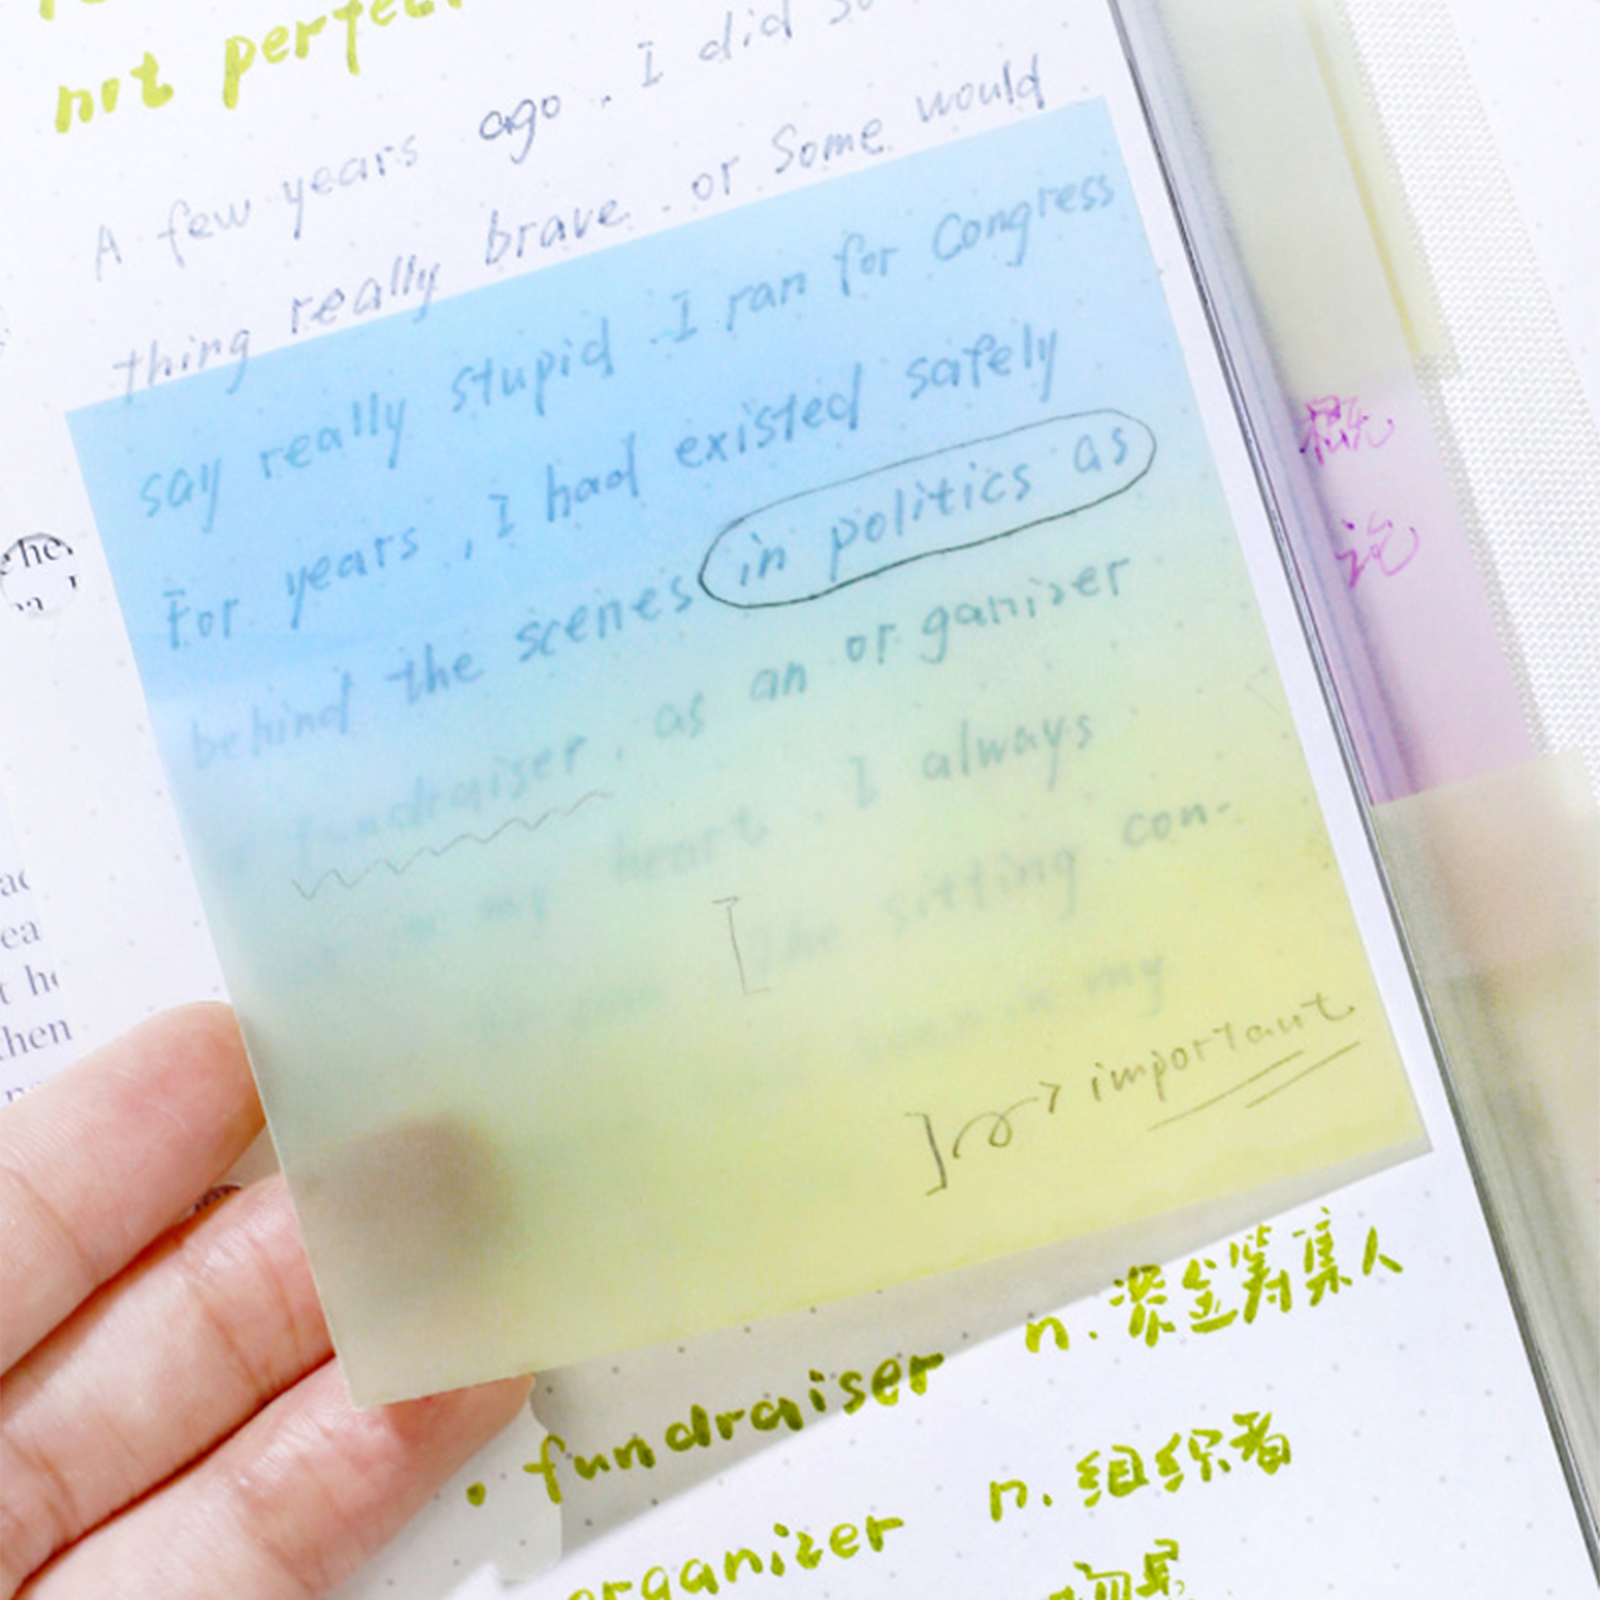 not perfect
A few years ago. I did so
thing really brave. or Some would
say really stupid. I ran for Congress
For years, I had existed safely
behind the scenes in politics as
fundraiser, as an organizer
in my heart. I always
The sitting con-
my
] → important
• fundraiser n. 资金筹集人
organizer n. 组织者
概
论
he,
ea
t he
then